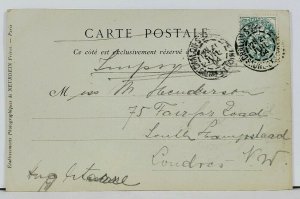 CARTE POSTALE
Ce côté est exclusivement réservé
Miss M Henderson
75 Fairfax Road
South Hampstead
Londres N.W.
Angleterre
Etablissements Photographiques de NEURDEIN Frères - Paris